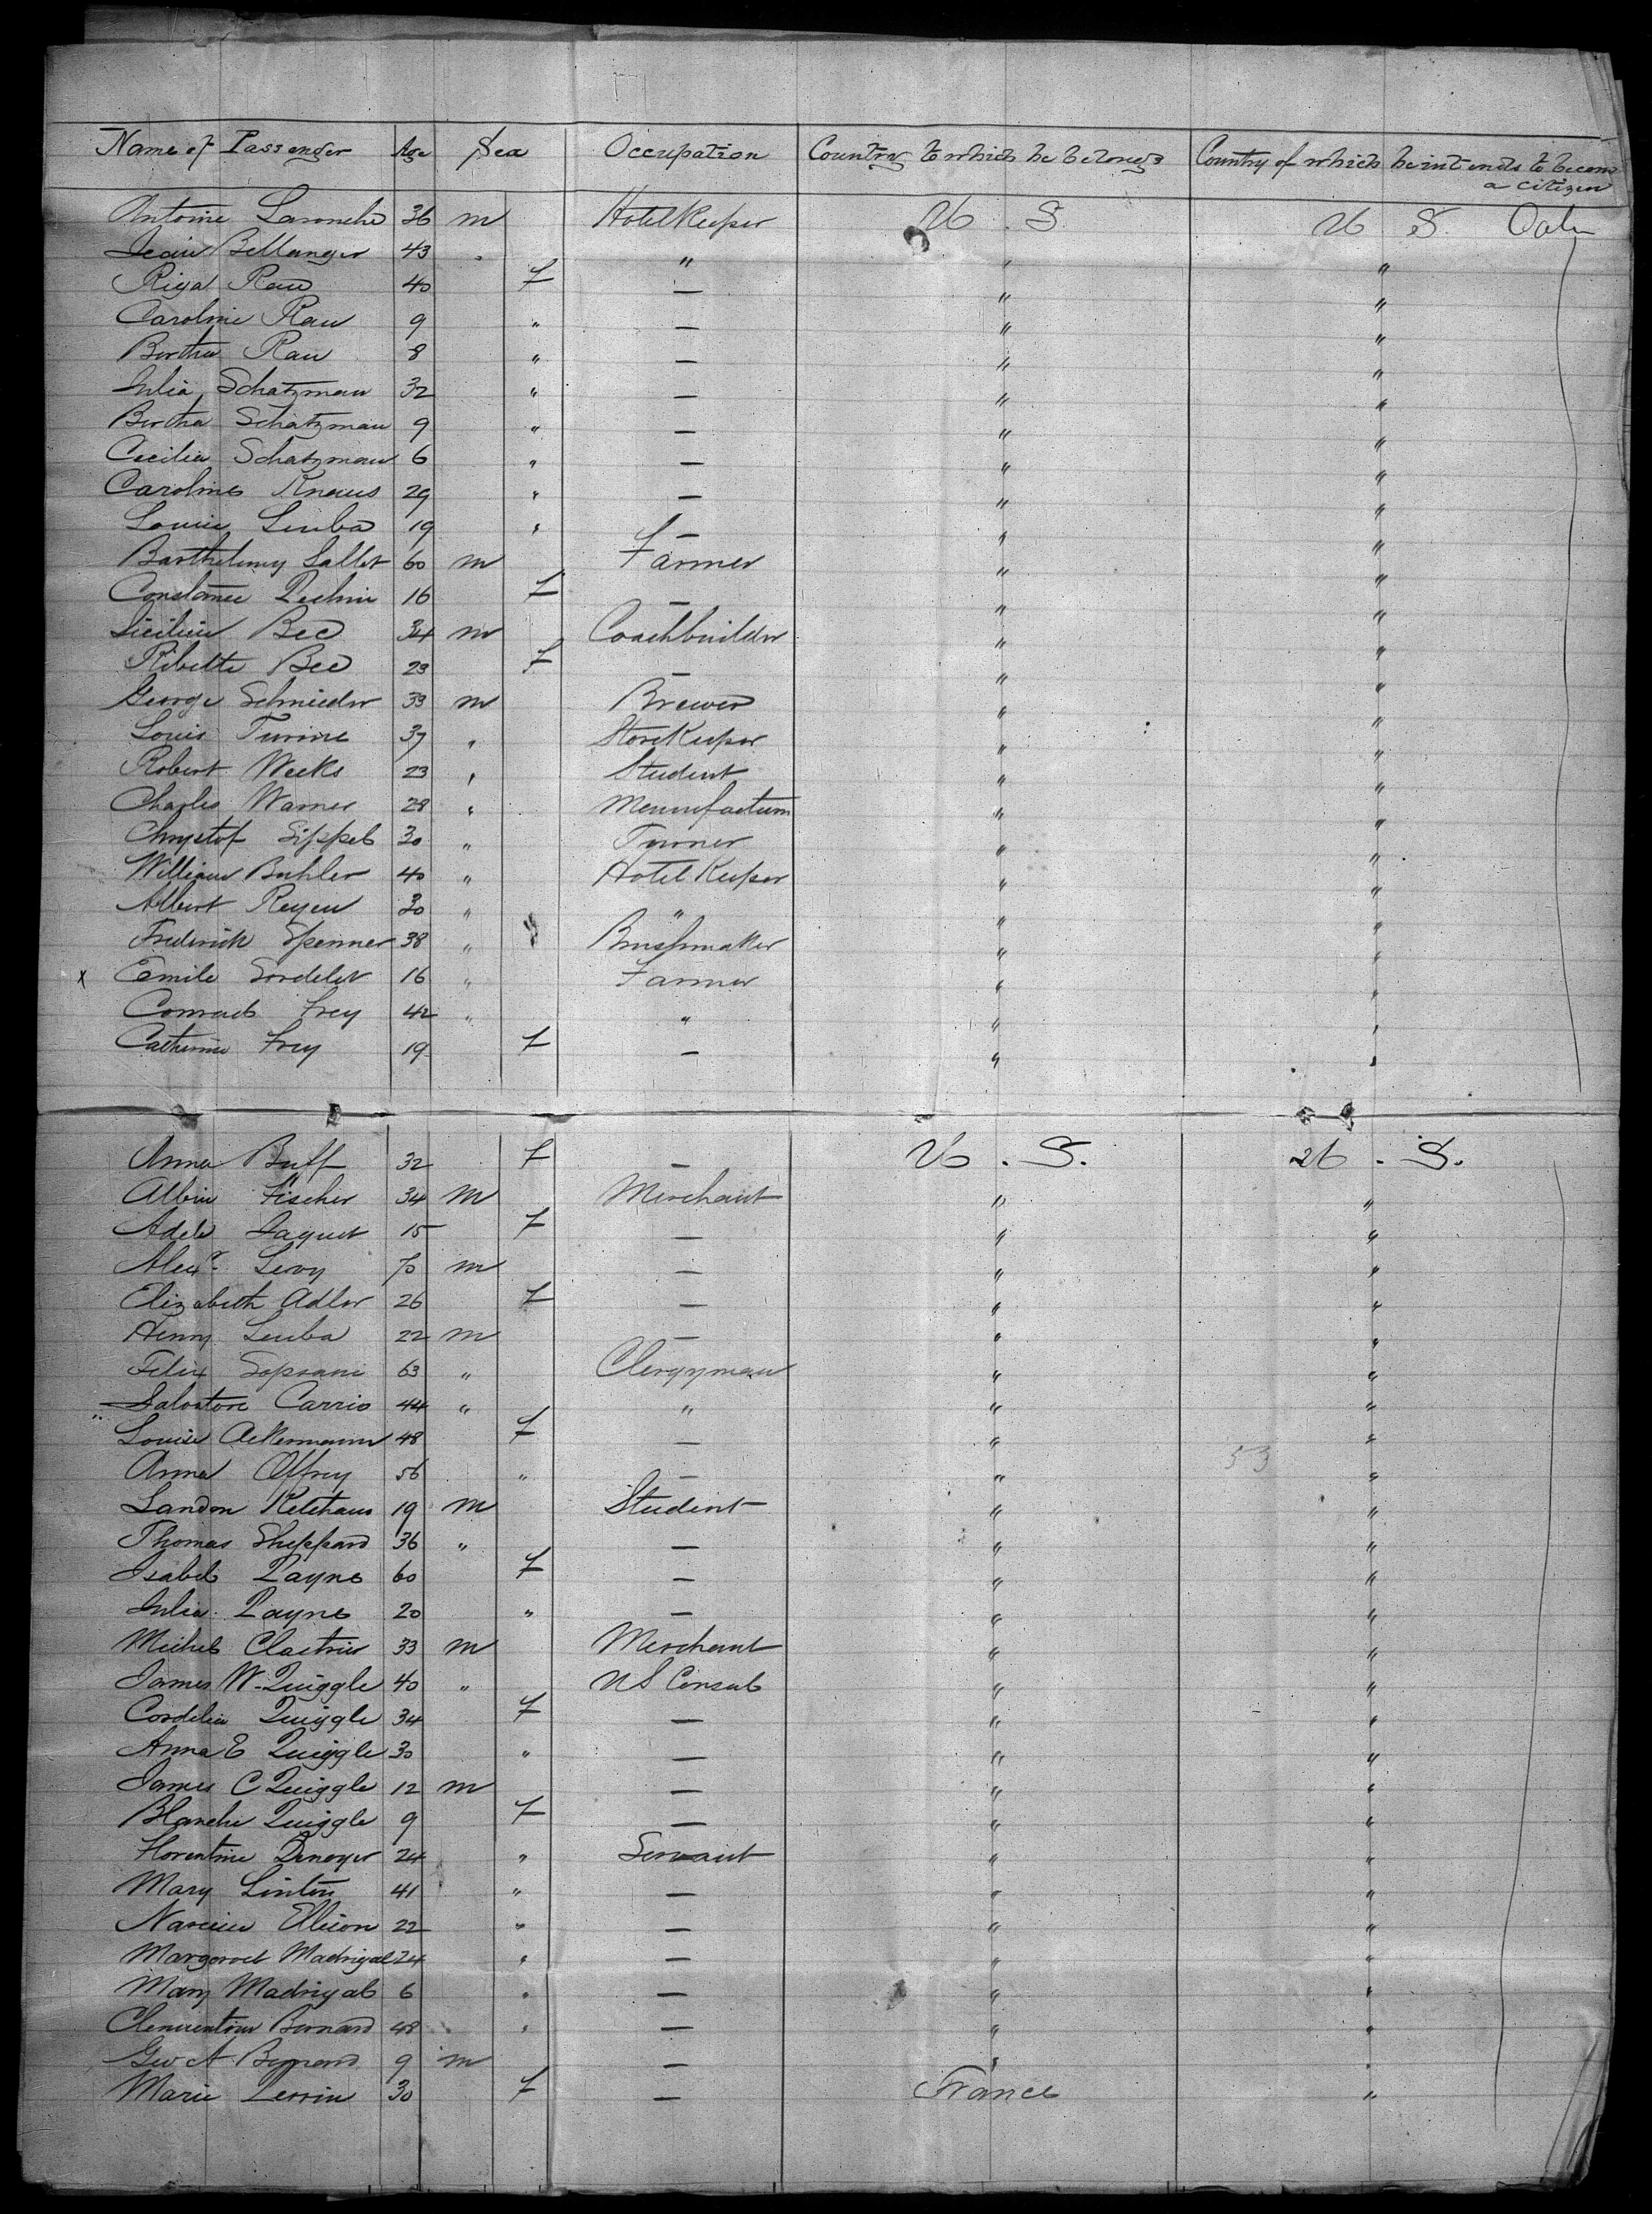 Name of Passenger Age Sex Occupation Country to which he belongs Country of which he intends to become a citizen
Antoine Laronche 36 m Hotelkeeper U. S. U. S.
Jean Bellanger 43 " " " "
Rau 40 F — " "
Caroline Rau 9 " — " "
Bertha Rau 8 " — " "
Julia Schatzman 32 " — " "
Bertha Schatzman 9 " — " "
Cecilia Schatzman 6 " — " "
Caroline Knaus 29 " — " "
Louise Leuba 19 " — " "
Barthelemy Sallet 60 m Farmer " "
Constance Pechin 16 F — " "
Bec 34 m Coachbuilder " "
Bec 23 F — " "
George Schmieder 33 m Brewer " "
Louis 37 " Storekeeper " "
Robert Weeks 23 " Student " "
Charles Warner 28 " " "
Chrystof Sippel 30 " Turner " "
William Buhler 40 " Hotel Keeper " "
Albert Reyen 30 " " " "
Frederick Spenner 38 " Brushmaker " "
x Emile Sordelet 16 " Farmer " "
Conrad Frey 42 " " " "
Catherine Frey 19 F — " "
Anna Buff 32 F — U. S. U. S.
Albin Fischer 34 m Merchant " "
Adele Jaquet 15 F — " "
Alexr. Levy 70 m — " "
Elizabeth Adler 26 F — " "
Henry Leuba 22 m — " "
Felix Soprani 63 " Clergyman " "
Salvatore Carrio 44 " " " "
Louise Ackermann 48 F — " "
Anna Offrey 56 " — " "
Landon 19 m Student " "
Thomas Sheppard 36 " — " "
Isabel Payne 60 F — " "
Julia Payne 20 " — " "
Michel Clastrier 33 m Merchant " "
James W. Quiggle 40 " US Consul " "
Cordelia Quiggle 34 F — " "
Anna E Quiggle 30 " — " "
James C Quiggle 12 m — " "
Blanche Quiggle 9 F — " "
Florentine Denoyer 24 " Servant " "
Mary Linton 41 " — " "
Ellison 22 " — " "
Margaret Madrigal 24 " — " "
Mary Madrigal 6 " — " "
Bernard 48 " — " "
Geo A Bernard 9 m — " "
Marie Perrin 30 F — France "